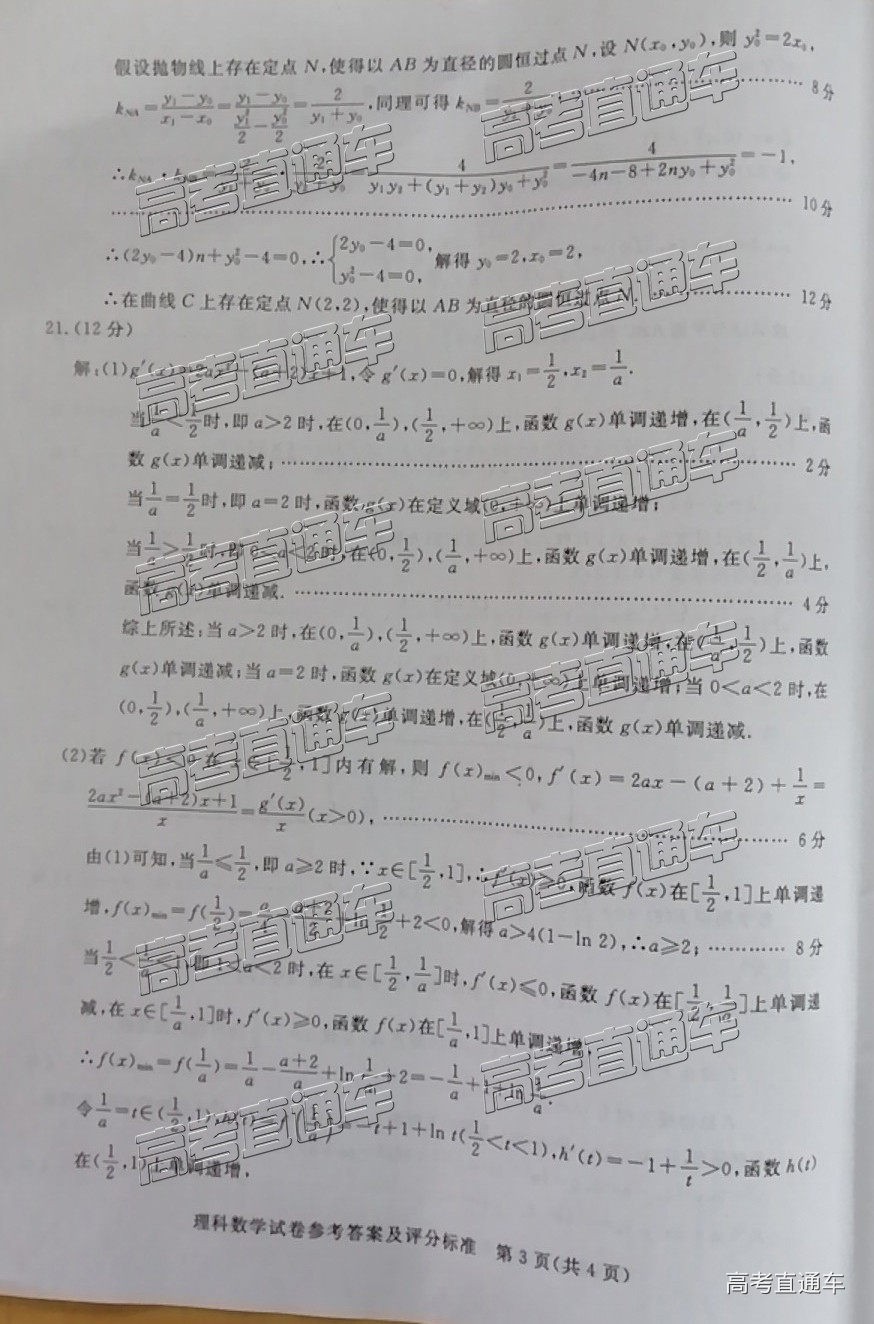 假设抛物线上存在定点 N,使得以 AB 为直径的圆恒过点 N,设 N(x₀,y₀),则 y₀²=2x₀,
k_NA=(y₁-y₀)/(x₁-x₀)=(y₁-y₀)/(y₁²/2-y₀²/2)=2/(y₁+y₀),同理可得 k_NB=2/(y₂+y₀), …… 8分
∴k_NA·k_NB=2/(y₁+y₀)·2/(y₂+y₀)=4/(y₁y₂+(y₁+y₂)y₀+y₀²)=4/(-4n-8+2ny₀+y₀²)=-1,
…… 10分
∴(2y₀-4)n+y₀²-4=0,∴{2y₀-4=0, y₀²-4=0, 解得 y₀=2,x₀=2,
∴在曲线 C 上存在定点 N(2,2),使得以 AB 为直径的圆恒过点 N. …… 12分
21.(12分)
解:(1)g′(x)=2ax²-(a+2)x+1,令 g′(x)=0,解得 x₁=1/2,x₂=1/a.
当1/a<1/2时,即 a>2 时,在(0,1/a),(1/2,+∞)上,函数 g(x)单调递增,在(1/a,1/2)上,函
数 g(x)单调递减; …… 2分
当1/a=1/2时,即 a=2 时,函数 g(x)在定义域(0,+∞)上单调递增;
当1/a>1/2时,即 0<a<2 时,在(0,1/2),(1/a,+∞)上,函数 g(x)单调递增,在(1/2,1/a)上,
函数 g(x)单调递减. …… 4分
综上所述:当 a>2 时,在(0,1/a),(1/2,+∞)上,函数 g(x)单调递增,在(1/a,1/2)上,函数
g(x)单调递减;当 a=2 时,函数 g(x)在定义域(0,+∞)上单调递增;当 0<a<2 时,在
(0,1/2),(1/a,+∞)上,函数 g(x)单调递增,在(1/2,1/a)上,函数 g(x)单调递减.
(2)若 f(x)<0 在 x∈[1/2,1]内有解,则 f(x)min<0,f′(x)=2ax-(a+2)+1/x=
(2ax²-(a+2)x+1)/x=g′(x)/x(x>0), …… 6分
由(1)可知,当1/a≤1/2,即 a≥2 时,∵x∈[1/2,1],∴f′(x)≥0,函数 f(x)在[1/2,1]上单调递
增,f(x)min=f(1/2)=a/4-(a+2)/2+ln1/2+2<0,解得 a>4(1-ln 2),∴a≥2; …… 8分
当1/2<1/a<1,即 1<a<2 时,在 x∈[1/2,1/a]时,f′(x)≤0,函数 f(x)在[1/2,1/a]上单调递
减,在 x∈[1/a,1]时,f′(x)≥0,函数 f(x)在[1/a,1]上单调递增,
∴f(x)min=f(1/a)=1/a-(a+2)/a+ln1/a+2=-1/a+1+ln1/a.
令1/a=t∈(1/2,1),h(t)=f(1/a)=-t+1+ln t(1/2<t<1),h′(t)=-1+1/t>0,函数 h(t)
在(1/2,1)上单调递增,
理科数学试卷参考答案及评分标准 第 3 页(共 4 页)
高考直通车